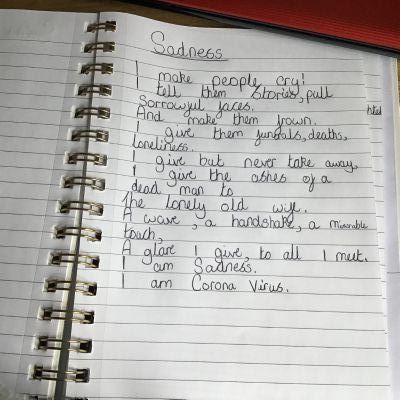 Sadness
I make people cry!
I tell them stories, pull
Sorrowful faces.
And make them frown.
I give them funerals, deaths,
loneliness.
I give but never take away,
I give the ashes of a
dead man to
the lonely old wife.
A wave, a handshake, a miserable
touch,
A glare I give, to all I meet.
I am Sadness.
I am Corona Virus.